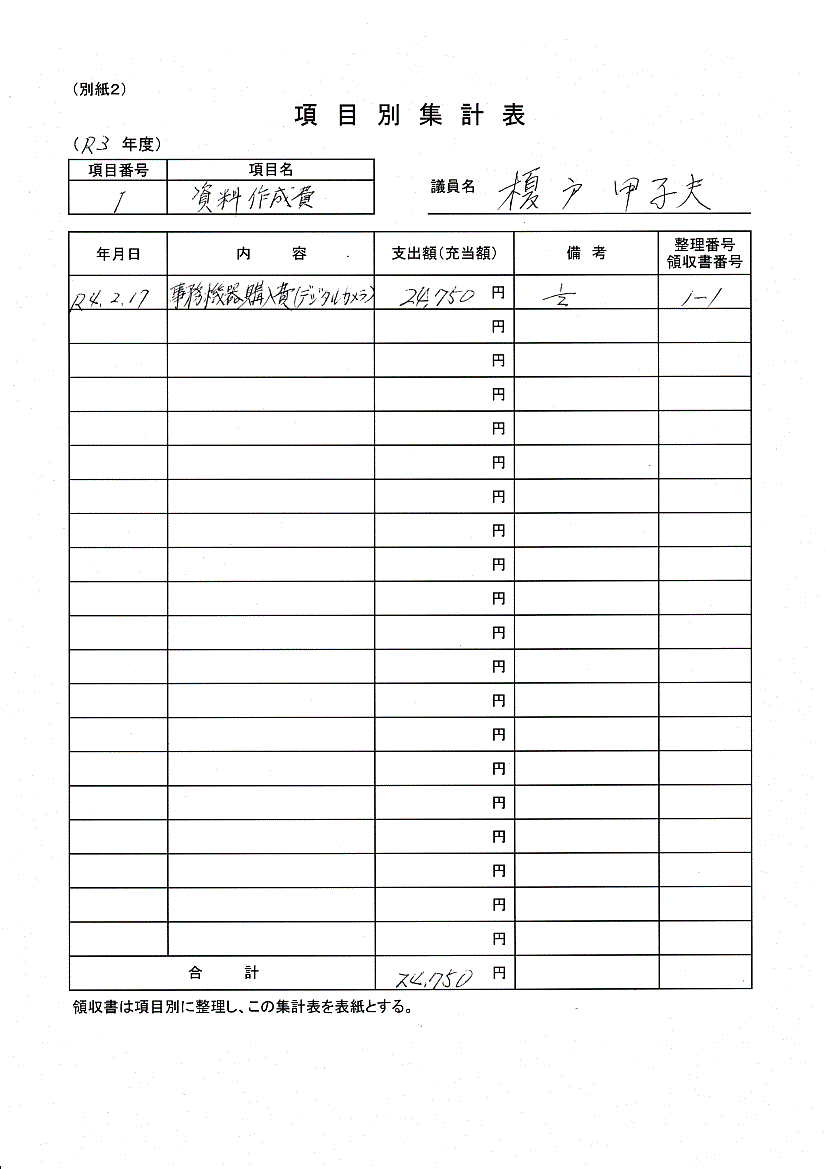 (別紙2)
項目別集計表
(R3 年度)
項目番号 項目名
1 資料作成費
議員名 榎戸 甲子夫
年月日 内容 支出額(充当額) 備考 整理番号 領収書番号
R4.2.17 事務機器購入費(デジタルカメラ) 24,750 円 1/2 1-1
円
円
円
円
円
円
円
円
円
円
円
円
円
円
円
円
円
円
円
合計 24,750 円
領収書は項目別に整理し、この集計表を表紙とする。